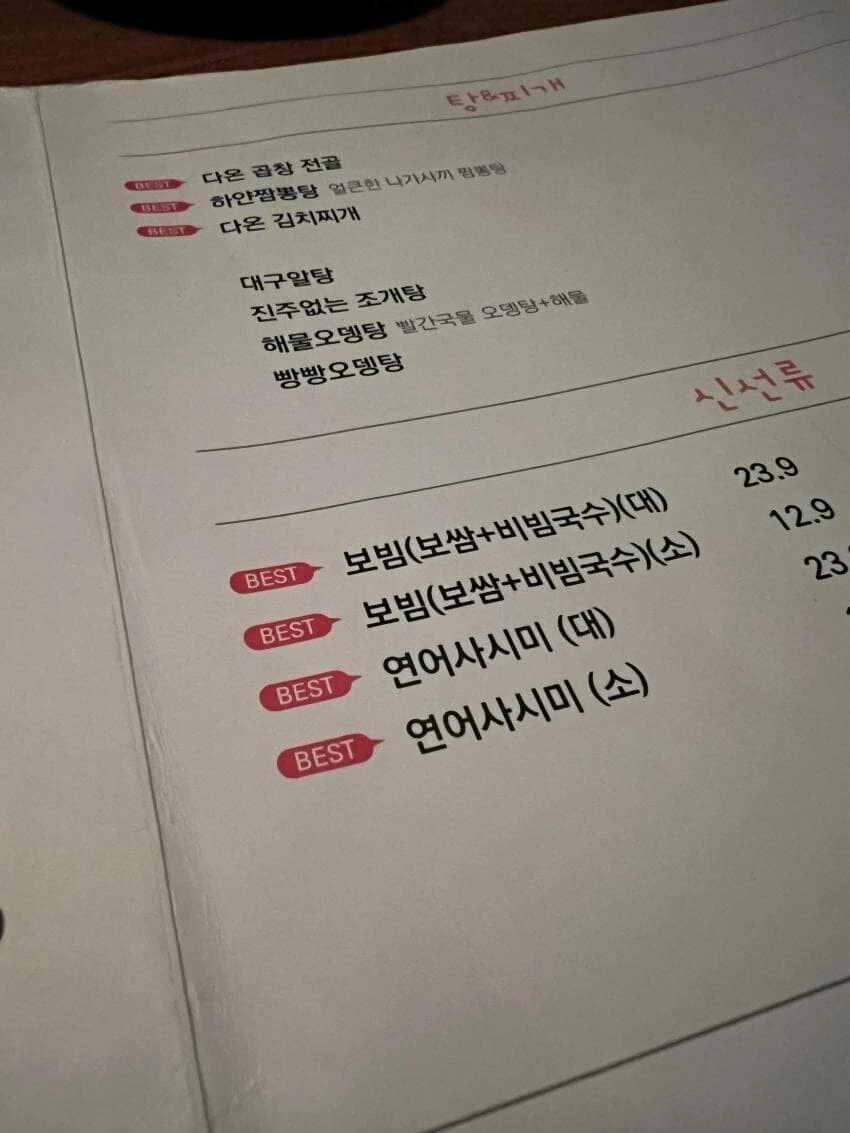 탕&찌개
BEST 다온 곱창 전골
BEST 하얀짬뽕탕 얼큰한 나가사끼 짬뽕탕
BEST 다온 김치찌개
대구알탕
진주없는 조개탕
해물오뎅탕 빨간국물 오뎅탕+해물
빵빵오뎅탕
신선류
BEST 보빔(보쌈+비빔국수)(대) 23.9
BEST 보빔(보쌈+비빔국수)(소) 12.9
BEST 연어사시미 (대) 23.
BEST 연어사시미 (소)